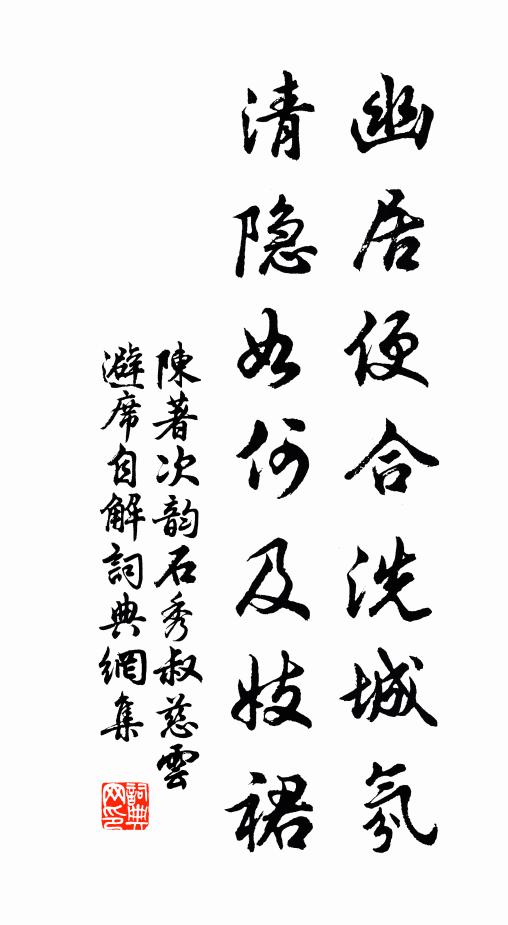 幽居便合洗城氛
清隐如何及妓裙
陳著次韵石秀叔慈雲
避席自解詞典網集
詞典网印